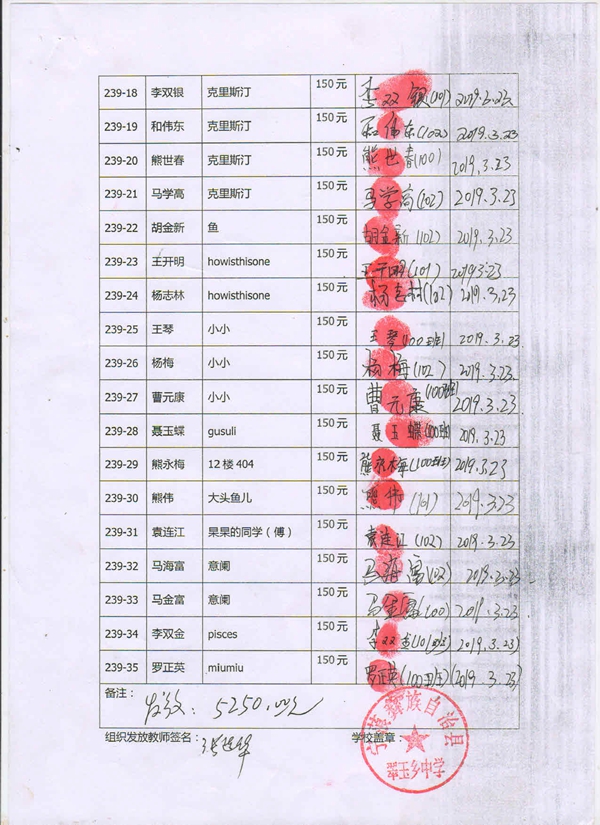 239-18 李双银 克里斯汀 150元 李双银(101) 2019.3.23
239-19 和伟东 克里斯汀 150元 和伟东(102) 2019.3.23
239-20 熊世春 克里斯汀 150元 熊世春(100) 2019.3.23
239-21 马学高 克里斯汀 150元 马学高(102) 2019.3.23
239-22 胡金新 鱼 150元 胡金新(102) 2019.3.23
239-23 王开明 howisthisone 150元 王开明(101) 2019.3.23
239-24 杨志林 howisthisone 150元 杨志林(102) 2019.3.23
239-25 王琴 小小 150元 王琴(100班) 2019.3.23
239-26 杨梅 小小 150元 杨梅(102) 2019.3.23
239-27 曹元康 小小 150元 曹元康(100班) 2019.3.23
239-28 聂玉蝶 gusuli 150元 聂玉蝶(100班) 2019.3.23
239-29 熊永梅 12楼404 150元 熊永梅(100班) 2019.3.23
239-30 熊伟 大头鱼儿 150元 熊伟(101) 2019.3.23
239-31 袁连江 杲杲的同学（傅） 150元 袁连江(102) 2019.3.23
239-32 马海富 意阑 150元 马海富(102) 2019.3.23
239-33 马金富 意阑 150元 马金富(100) 2019.3.23
239-34 李双金 pisces 150元 李双金(101班) 2019.3.23)
239-35 罗正英 miumiu 150元 罗正英(100班)(2019.3.23)
备注：
发放：5250.00元
组织发放教师签名： 学校盖章：
宁蒗彝族自治县
学中乡玉翠